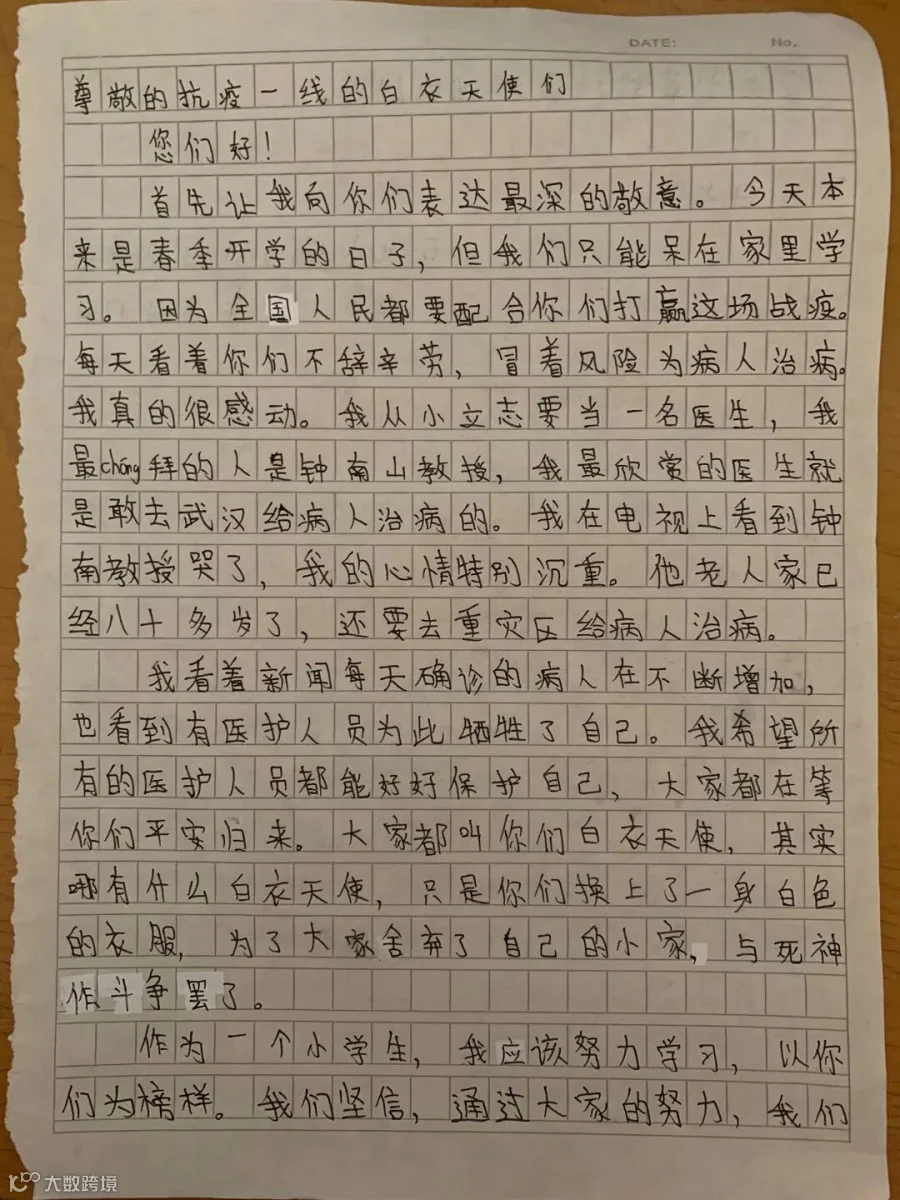 DATE: No.
尊敬的抗疫一线的白衣天使们
您们好！
首先让我向你们表达最深的敬意。今天本
来是春季开学的日子，但我们只能呆在家里学
习。因为全国人民都要配合你们打赢这场战疫。
每天看着你们不辞辛劳，冒着风险为病人治病。
我真的很感动。我从小立志要当一名医生，我
最chóng拜的人是钟南山教授，我最欣赏的医生就
是敢去武汉给病人治病的。我在电视上看到钟
南教授哭了，我的心情特别沉重。他老人家已
经八十多岁了，还要去重灾区给病人治病。
我看着新闻每天确诊的病人在不断增加，
也看到有医护人员为此牺牲了自己。我希望所
有的医护人员都能好好保护自己，大家都在等
你们平安归来。大家都叫你们白衣天使，其实
哪有什么白衣天使，只是你们换上了一身白色
的衣服，为了大家舍弃了自己的小家，与死神
作斗争罢了。
作为一个小学生，我应该努力学习，以你
们为榜样。我们坚信，通过大家的努力，我们
大数跨境